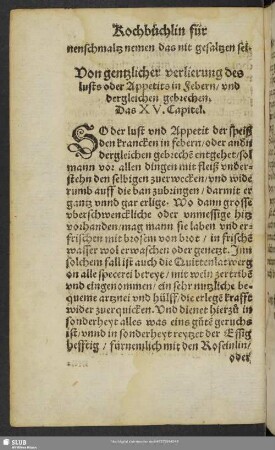 Kochbüchlin für
nenschmaltz nemen das nit gesaltzen sei.
Von gentzlicher verlierung des
lusts oder Appetits in Febern / vnd
dergleichen gebrechen.
Das XV. Capitel.
SO der lust vnd Appetit der speiß
den krancken in febern / oder andn̄
dergleichen gebrechē entgehet / sol
mann vor allen dingen mit fleiß vnder-
stehn den selbigen zuerwecken / vnd wide
rumb auff die ban zubringen / darmit er
gantz vnnd gar erlige. Wo dann grosse
überschwenckliche oder vnmessige hitz
vorhanden / mag mann sie laben vnd er-
frischen mit brosem von brot / in frischē
wasser wol erwaschen oder genetzt. Inn
solchem fall ist auch die Quittenlatwerg
on alle specerei bereyt / mit wein zertribē
vnd eingenommen / ein sehr nutzliche be-
queme artznei vnd hülff / die erlegē krafft
wider zuerquicken. Vnd dienet hierzů in
sonderheyt alles was eins gůtē geruchs
ist / vnnd in sonderheyt reytzet der Essig
hefftig / fürnemlich mit den Roseinlin /
oder
SLUB